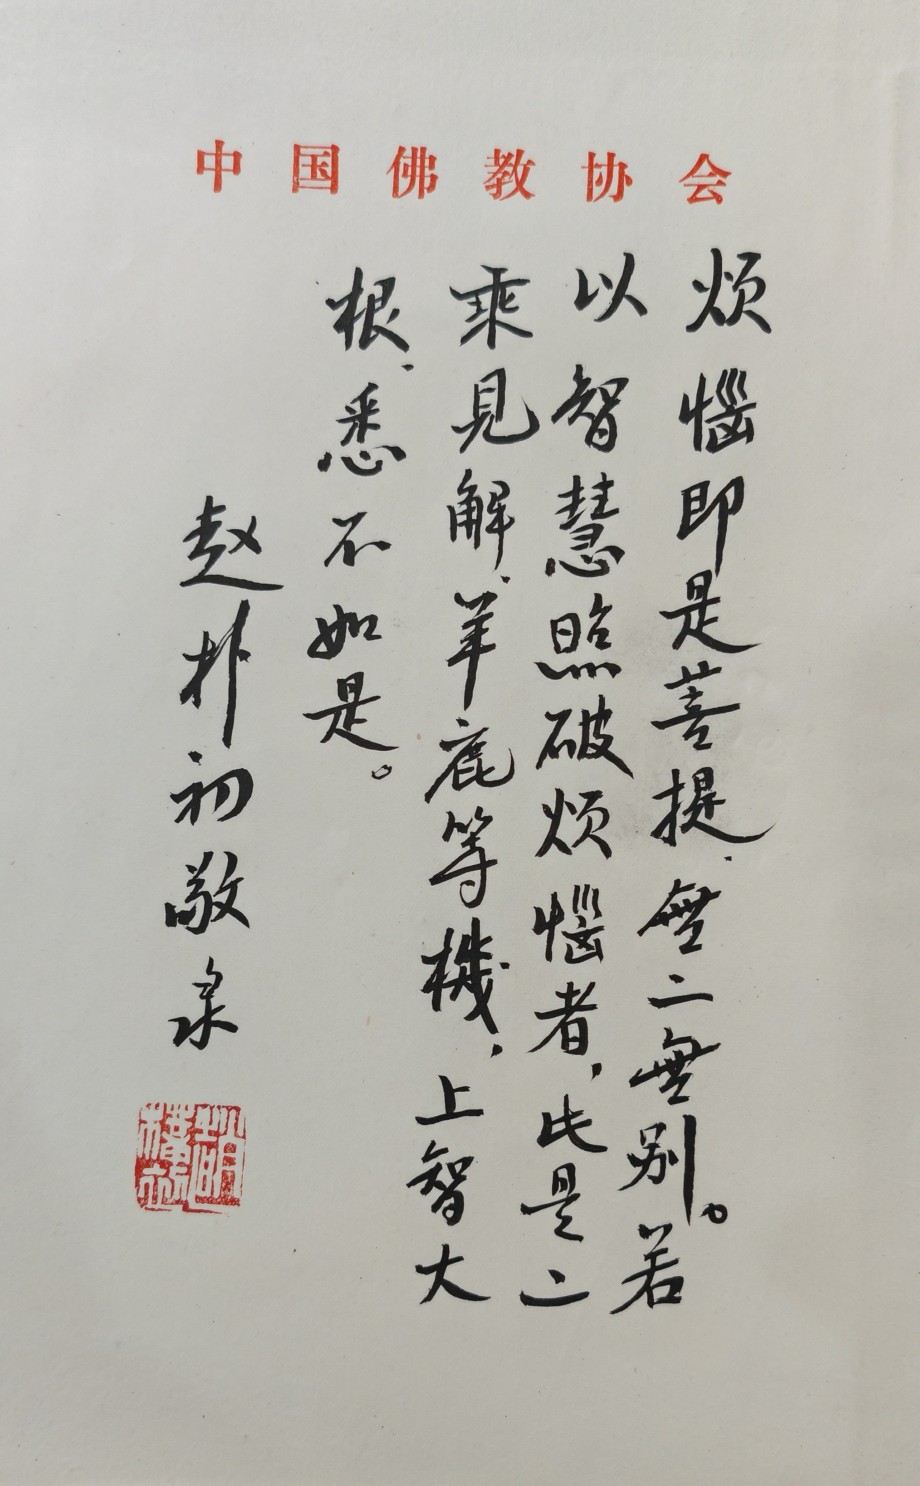 中国佛教协会
烦惱即是菩提、無二無别。若
以智慧照破烦惱者，此是二
乘見解、羊鹿等機，上智大
根、悉不如是。
赵朴初敬录
趙樸初